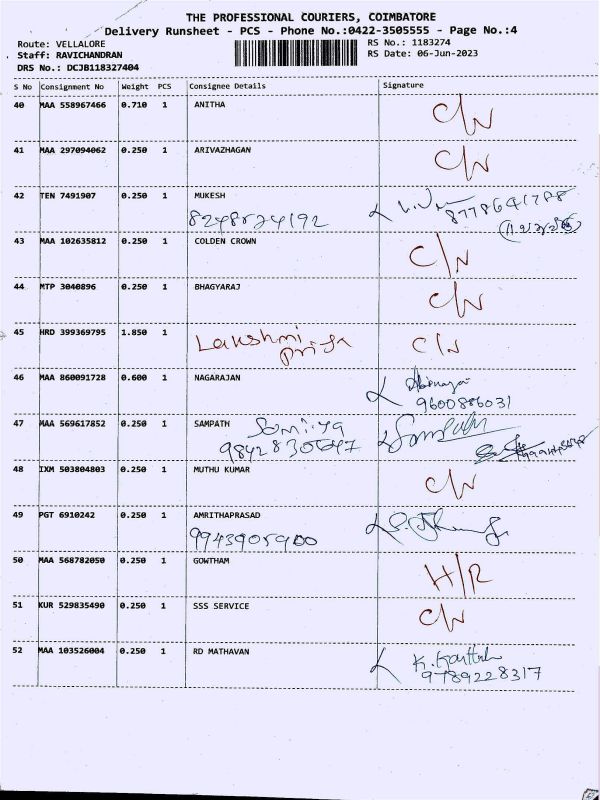 THE PROFESSIONAL COURIERS, COIMBATORE
Delivery Runsheet - PCS - Phone No.:0422-3505555 - Page No.:4
Route: VELLALORE
RS No.: 1183274
Staff: RAVICHANDRAN
RS Date: 06-Jun-2023
DRS No.: DCJB118327404
S No Consignment No Weight PCS Consignee Details Signature
40 MAA 558967466 0.710 1 ANITHA C/N
41 MAA 297094062 0.250 1 ARIVAZHAGAN C/N
42 TEN 7491907 0.250 1 MUKESH 8778641788
8248824192
43 MAA 102635812 0.250 1 COLDEN CROWN C/N
44 MTP 3040896 0.250 1 BHAGYARAJ C/N
45 HRD 399369795 1.850 1 Lakshmi C/N
Priya
46 MAA 860091728 0.600 1 NAGARAJAN
9600886031
47 MAA 569617852 0.250 1 SAMPATH Sowmiya Sampath
9842830647
48 IXM 503804803 0.250 1 MUTHU KUMAR C/N
49 PGT 6910242 0.250 1 AMRITHAPRASAD
9943905900
50 MAA 568782050 0.250 1 GOWTHAM H/R
51 KUR 529835490 0.250 1 SSS SERVICE C/N
52 MAA 103526004 0.250 1 RD MATHAVAN K. Karthik
9789228317